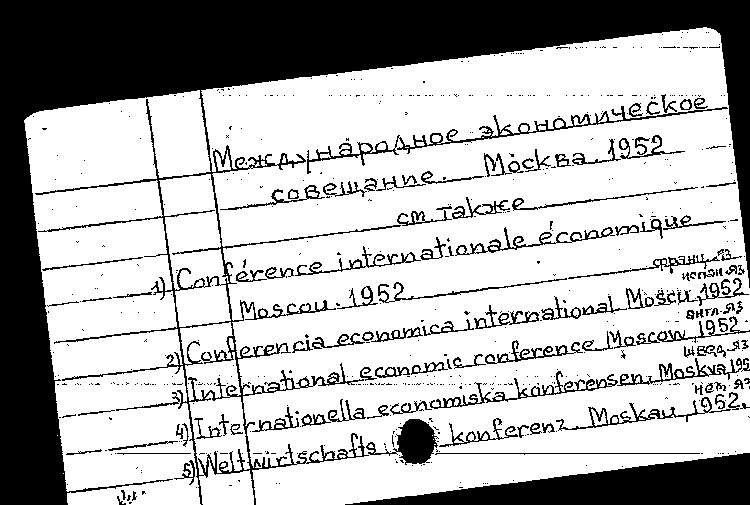 Международное экономическое
совещание. Москва. 1952
см. также
1) Conférence internationale économique
Moscou. 1952.
франц. яз
испан. яз
2) Conferencia economica international Moscu, 1952
англ. яз
3) International economic conference Moscow, 1952.
швед. яз
4) Internationella economiska konferensen, Moskva, 195
нем. яз
5) Weltwirtschafts konferenz. Moskau, 1952.